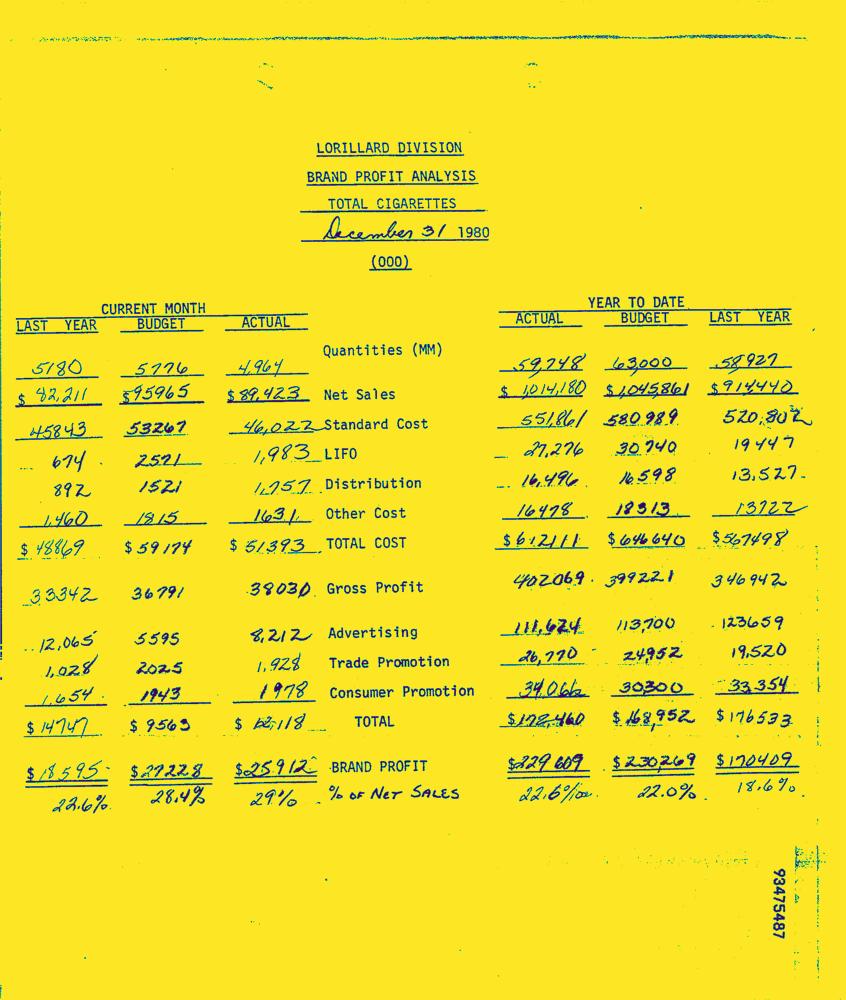 LORILLARD DIVISION
BRAND PROFIT ANALYSIS
TOTAL CIGARETTES
December 31 1980
(000)
CURRENT MONTH YEAR TO DATE
LAST YEAR BUDGET ACTUAL ACTUAL BUDGET LAST YEAR
Quantities (MM)
5180 5776 4,964 59,748 63,000 58,927
$ 82,211 $95965 $89,423 Net Sales $ 1,014,180 $1,045,861 $914,440
45843 53267 46,022 Standard Cost 551,861 580989 520,802
674 2571 1,983 LIFO 27,276 30740 19447
892 1521 1,757 Distribution 16,496 16598 13,527
1,460 1815 1631 Other Cost 16478 18313 13722
$ 48869 $ 59174 $ 51393 TOTAL COST $612111 $646640 $567498
33342 36791 38030 Gross Profit 402069 399221 346942
12,065 5595 8,212 Advertising 111,624 113,700 123659
1,028 2025 1,928 Trade Promotion 26,770 24,952 19,520
1,654 1943 1978 Consumer Promotion 34,066 30300 33,354
$ 14747 $ 9563 $ 12,118 TOTAL $172,460 $168,952 $176533
$18595 $27228 $25912 BRAND PROFIT $229609 $230,269 $170409
22.6% 28.4% 29% % OF NET SALES 22.6% 22.0% 18.6%
93475487